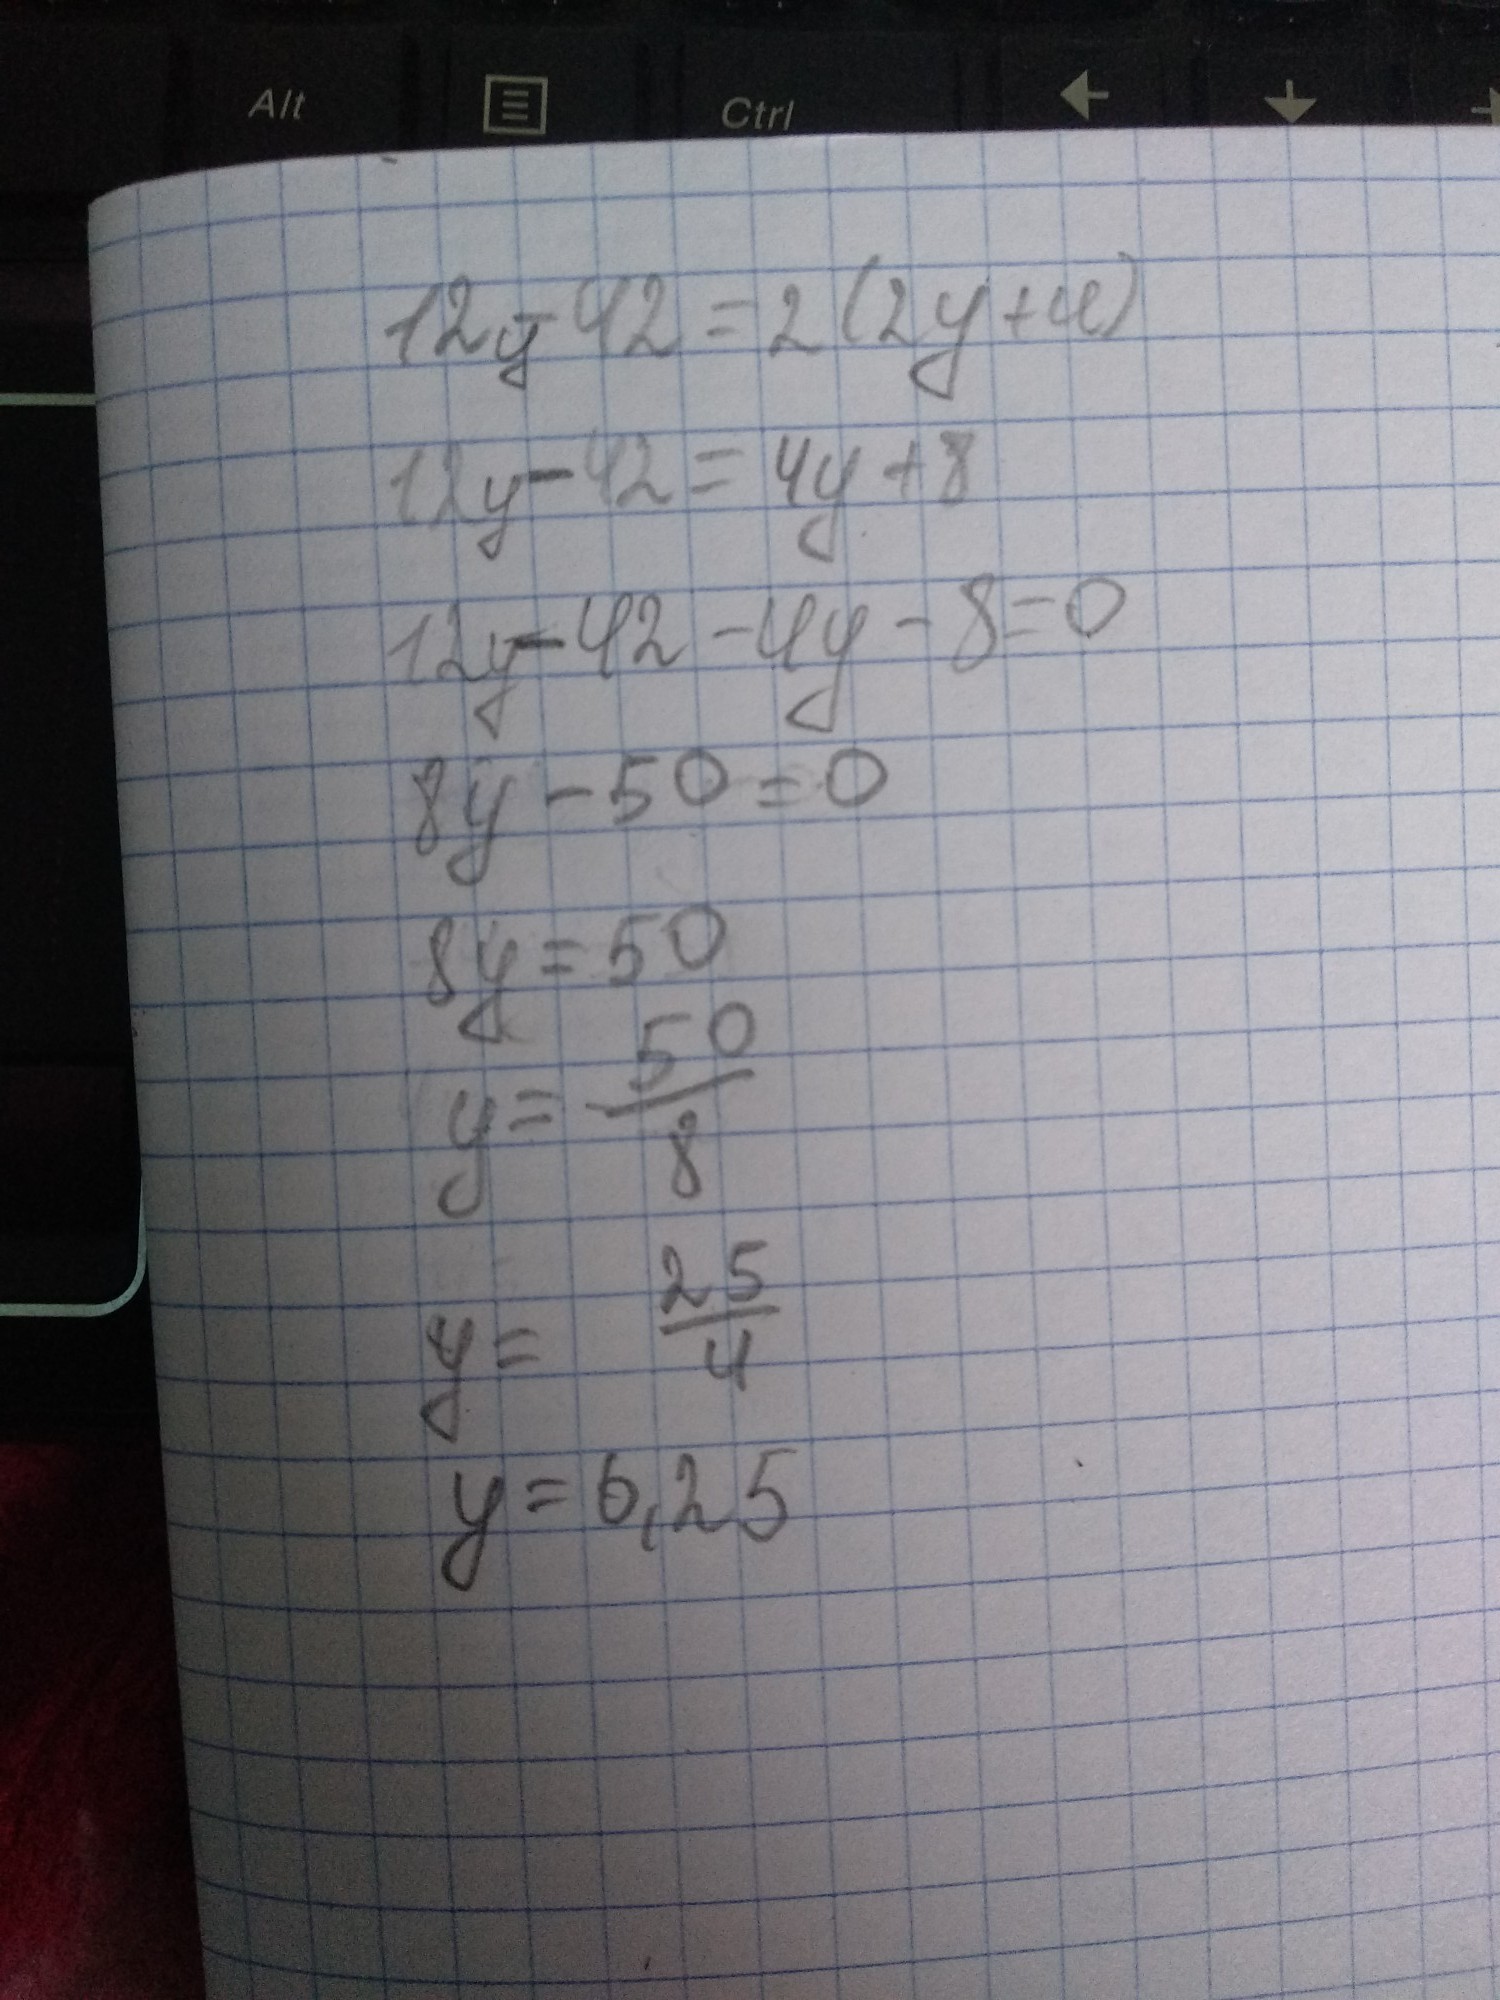 Alt Ctrl ← ↓
12y-42=2(2y+4)
12y-42=4y+8
12y-42-4y-8=0
8y-50=0
8y=50
y=50/8
y=25/4
y=6,25